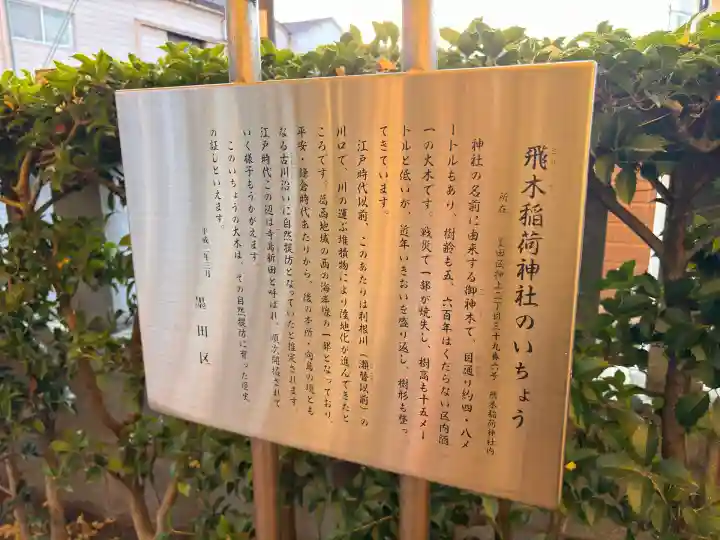 飛木稲荷神社のいちょう
所在 墨田区押上二丁目三十九番六号 飛木稲荷神社内
神社の名前に由来する御神木で、目通り約四・八メ
ートルもあり、樹齢も五、六百年はくだらない区内随
一の大木です。戦災で一部が焼失し、樹高も十五メー
トルと低いが、近年いきおいを盛り返し、樹形も整っ
てきています。
江戸時代以前、このあたりは利根川（瀬替以前）の
川口で、川の運ぶ堆積物により陸地化が進んできたと
ころです。葛西地域の西の海岸線の一部となっており、
平安・鎌倉時代あたりから、後の本所・向島の境とも
なる古川沿いに自然堤防となっていたと推定されます。
江戸時代この辺は寺島新田と呼ばれ、順次開拓されて
いく様子もうかがえます。
このいちょうの大木は、その自然堤防に育った歴史
の証しといえます。
平成 年三月
墨田区